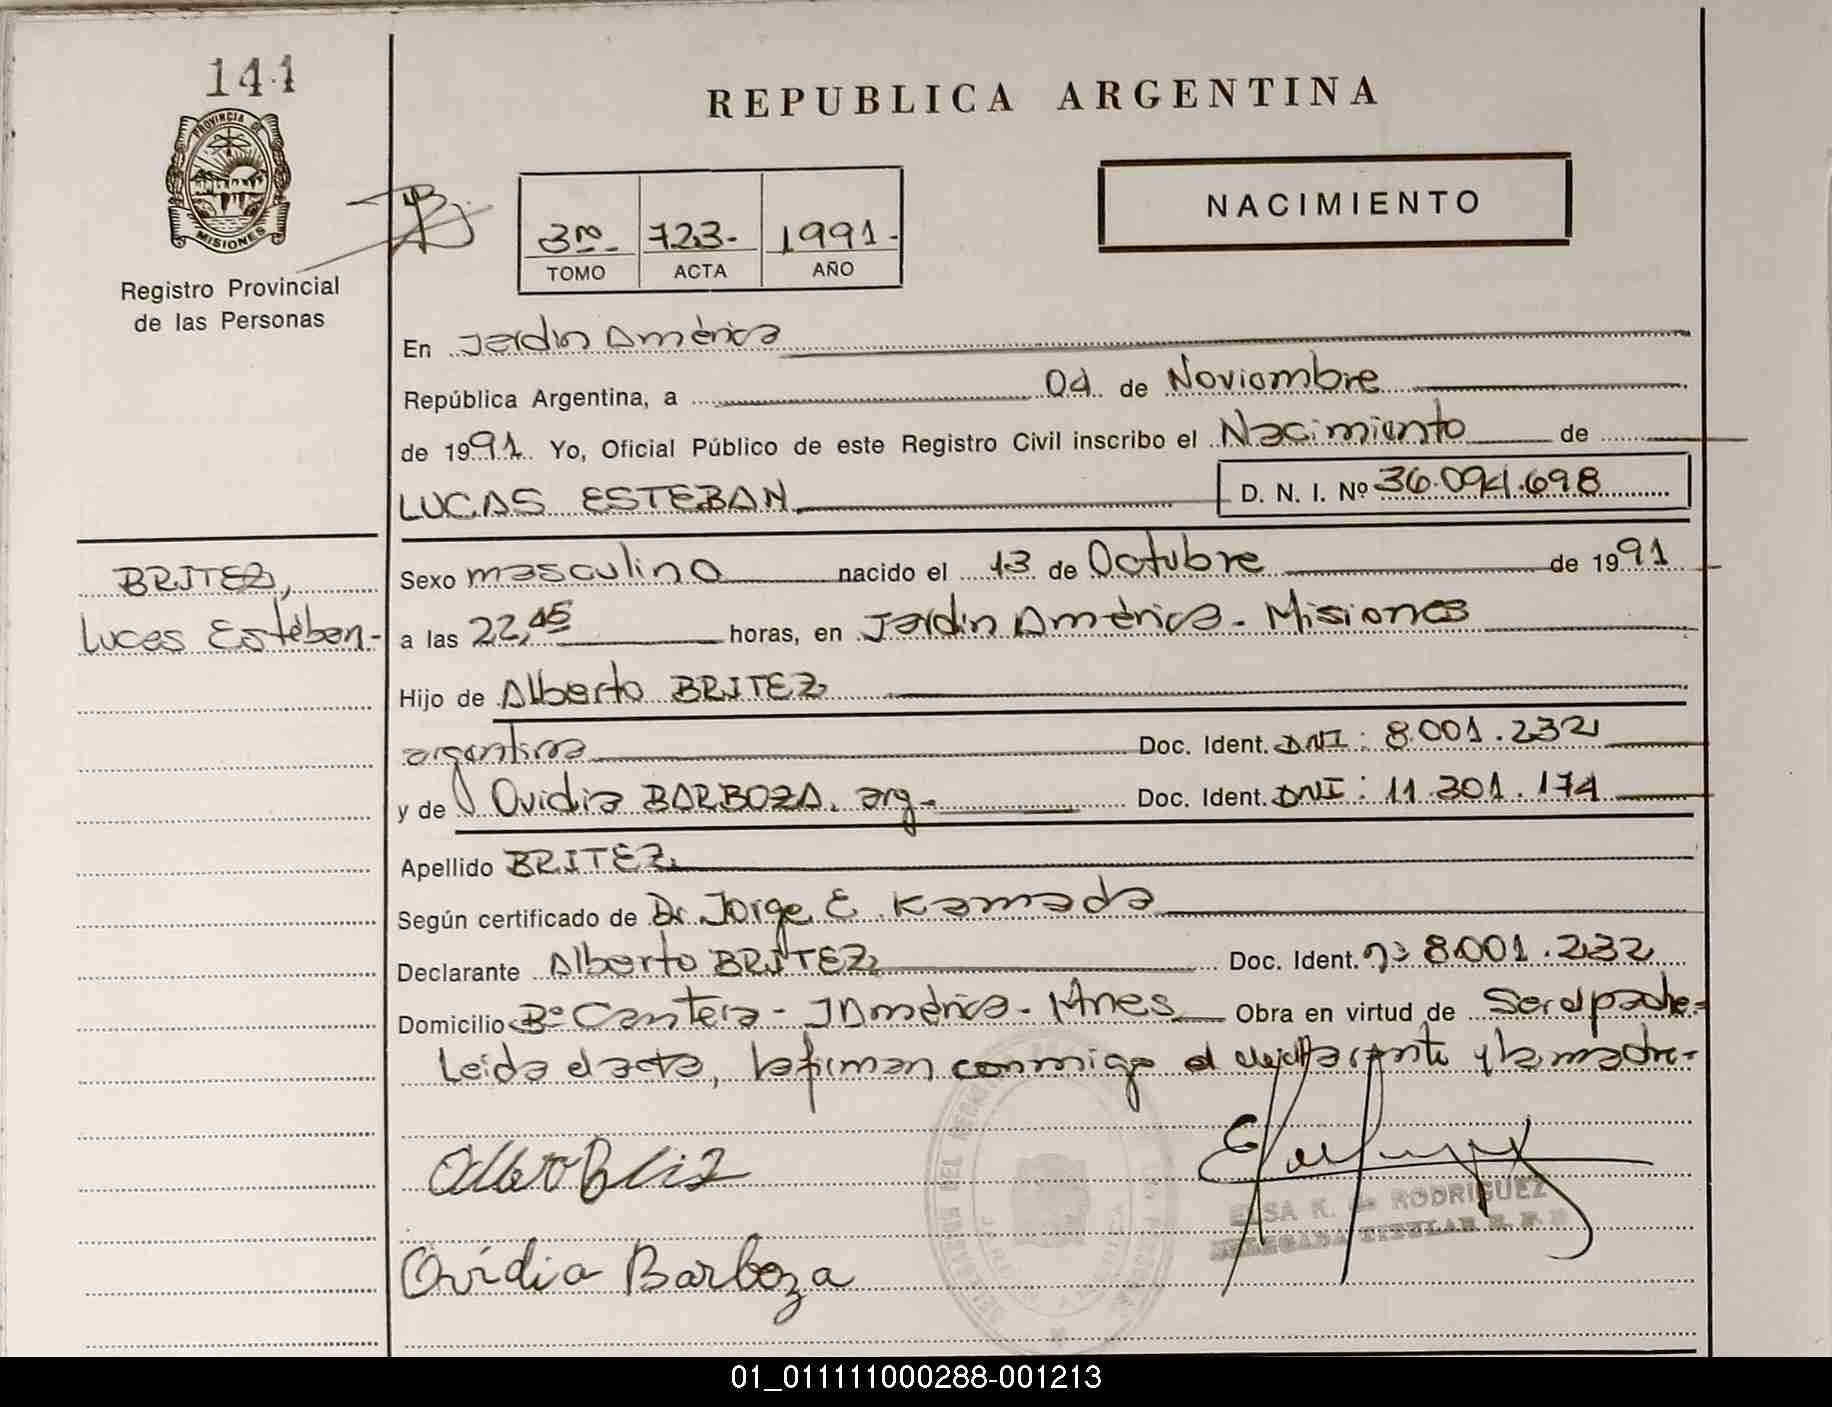 141
PROVINCIA DE
MISIONES
Registro Provincial
de las Personas
REPUBLICA ARGENTINA
NACIMIENTO
3ro- 723- 1991-
TOMO ACTA AÑO
En Jardin América
República Argentina, a 04 de Noviembre
de 1991. Yo, Oficial Público de este Registro Civil inscribo el Nacimiento de
LUCAS ESTEBAN D. N. I. Nº 36.094.698
BRITEZ,
Lucas Esteban-
Sexo masculino nacido el 13 de Octubre de 1991
a las 22,45 horas, en Jardin América - Misiones
Hijo de Alberto BRITEZ
argentina Doc. Ident. DNI: 8.001.232
y de Ovidia BARBOZA, arg- Doc. Ident. DNI: 11.301.174
Apellido BRITEZ
Según certificado de Dr. Jorge E. Kamada
Declarante Alberto BRITEZ Doc. Ident. nº 8.001.232
Domicilio Bº Cantera - J América - Mnes Obra en virtud de Ser el padre-
Leida el acta, la firman conmigo el declarante y la madre-
Ovidia Barboza
ELSA K. de RODRIGUEZ
DELEGADA TITULAR R. P. P.
01_011111000288-001213